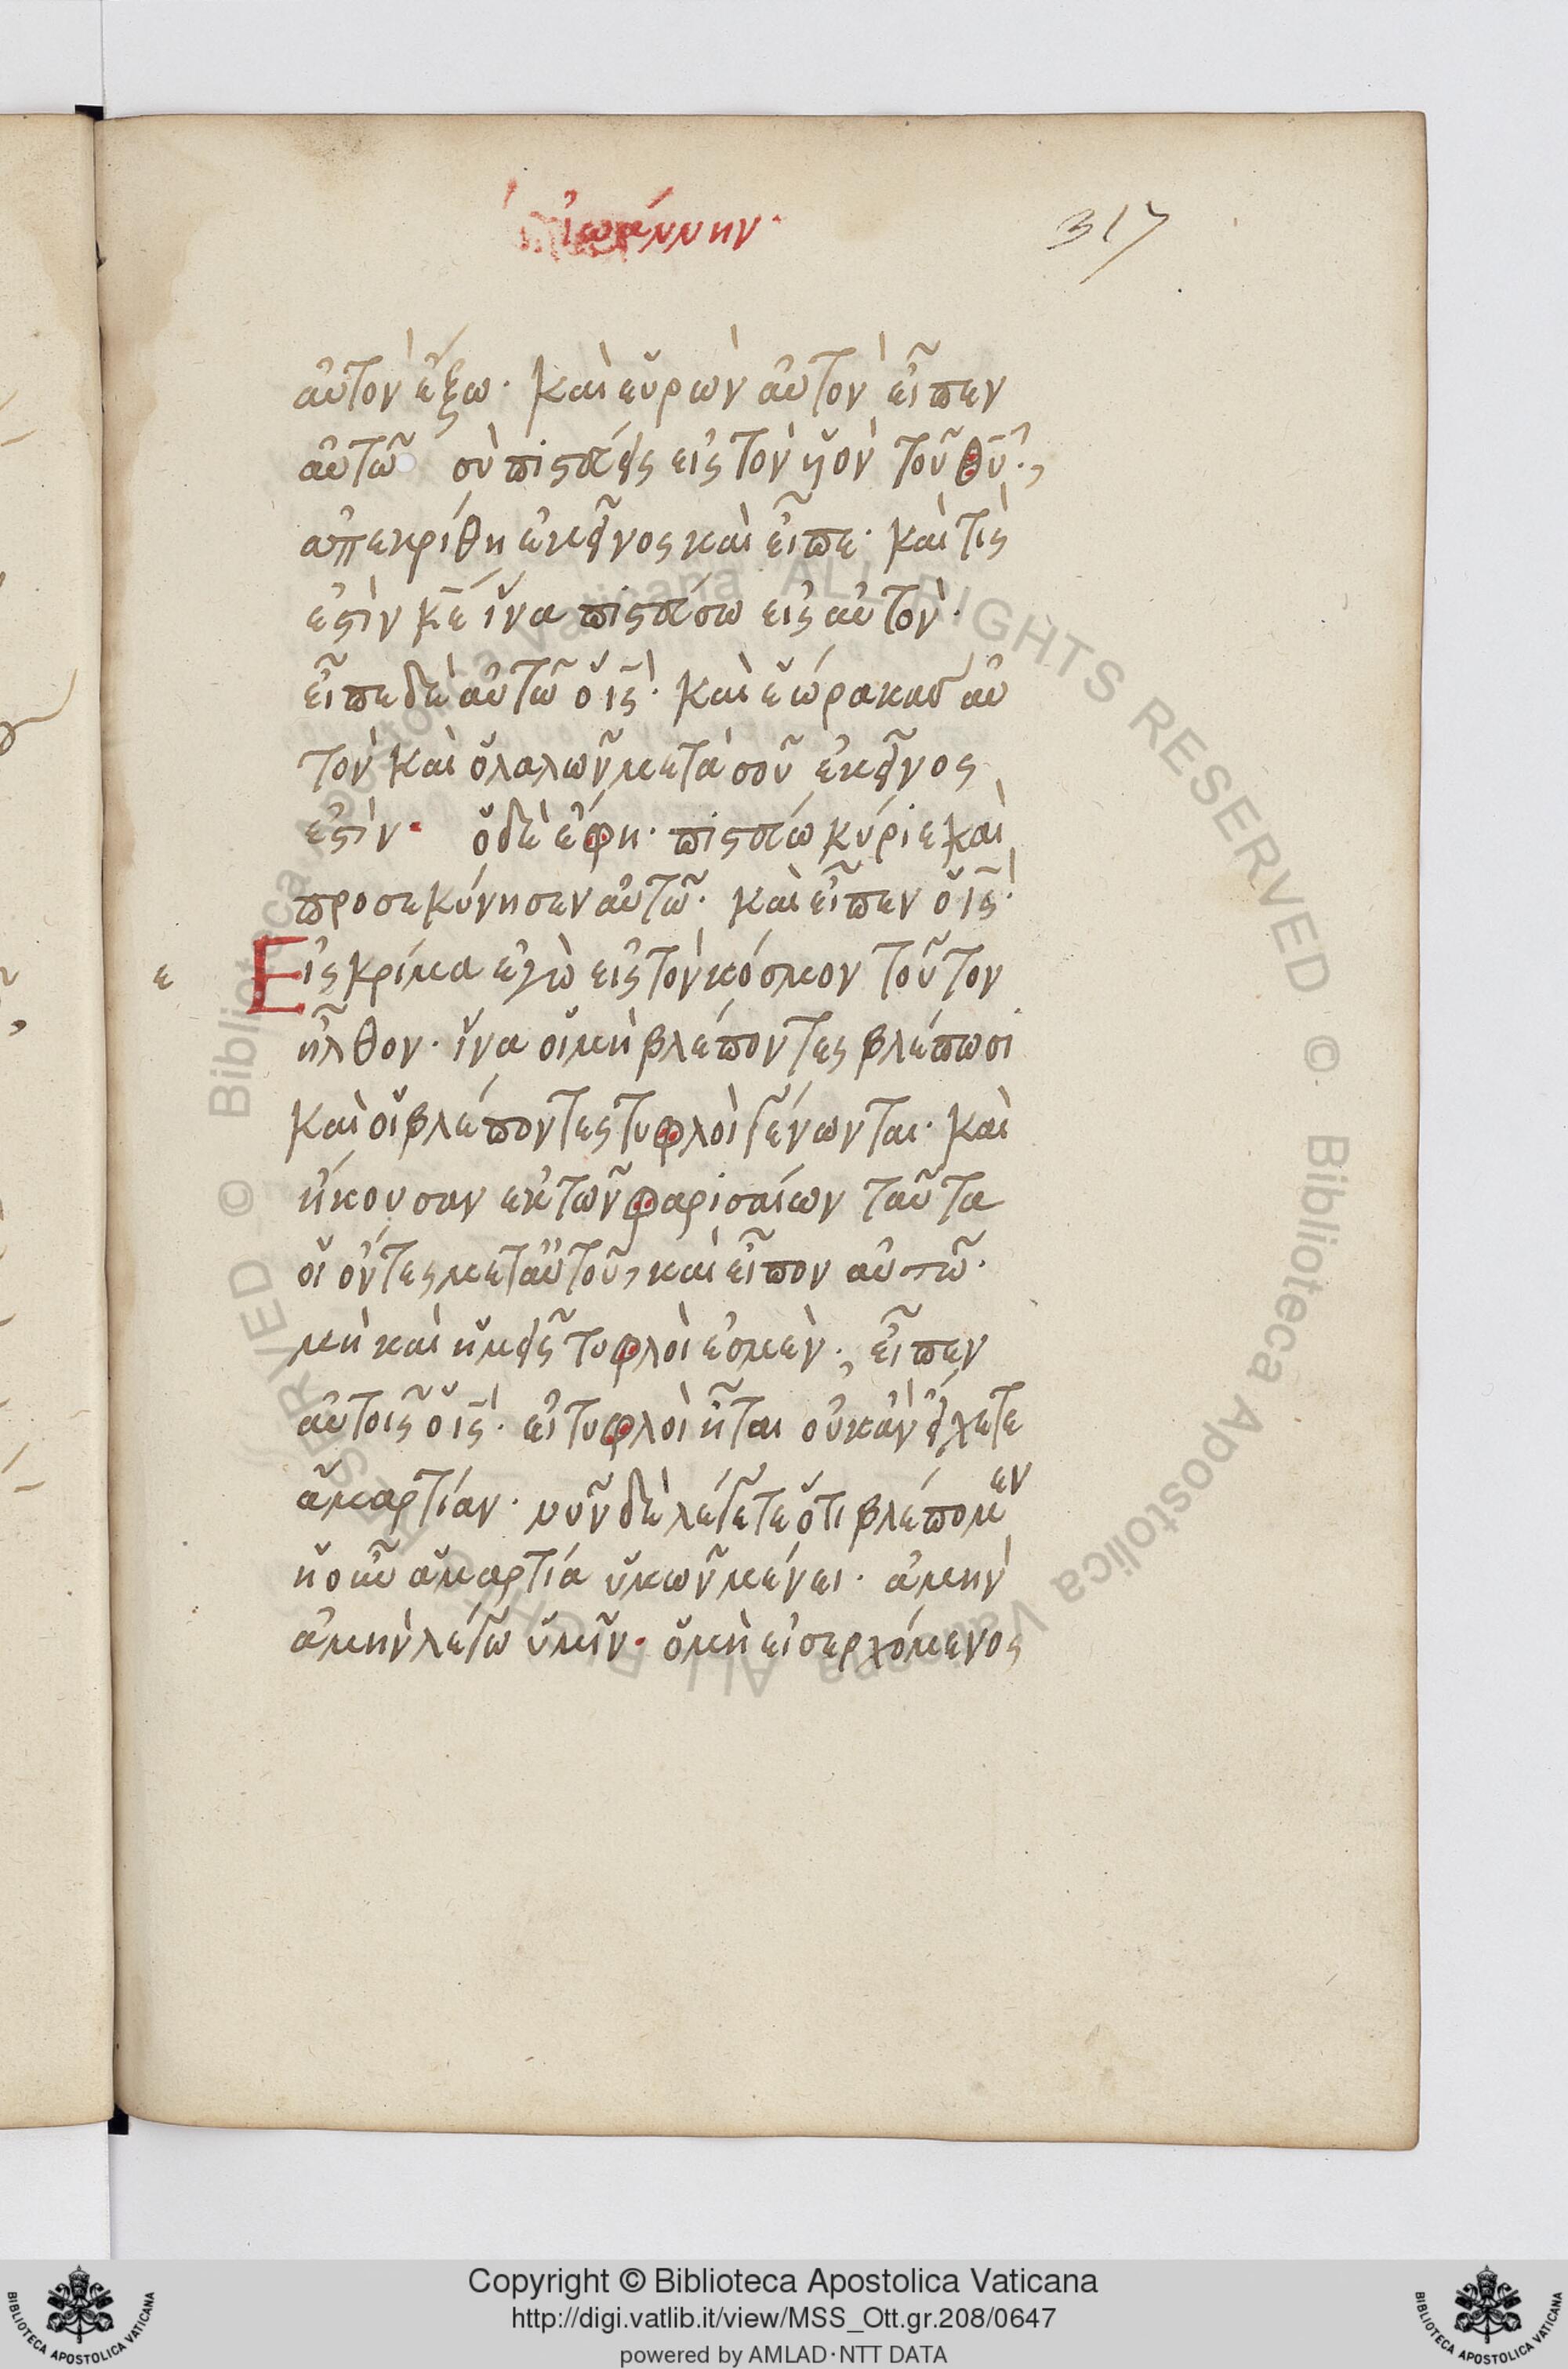 ἰωάννην·
317
αὐτὸν ἔξω· καὶ εὑρὼν αὐτὸν εἶπεν
αὐτῶ σὺ πιστεύεις εἰς τὸν υἱὸν τοῦ θυ̅·,
ἀπεκρίθη ἐκεῖνος καὶ εἶπε· καὶ τὶς
ἐστὶν κ̅ε̅ ἵνα πιστεύσω εἰς αὐτὸν·
εἶπε δὲ αὐτῶ ὁ ις̅· καὶ ἑώρακας αὐ
τὸν καὶ ὁ λαλῶν μετὰ σοῦ ἐκεῖνος
ἐστὶν· ὁ δὲ ἔφη· πιστεύω κύριε καὶ
προσεκύνησεν αὐτῶ· καὶ εἶπεν ὁ ις̅·
ε Εἰς κρίμα ἐγὼ εἰς τὸν κόσμον τοῦτον
ἦλθον· ἵνα οἱ μὴ βλέποντες βλέπωσι
καὶ οἱ βλέποντες τυφλοὶ γένωνται· καὶ
ἤκουσαν ἐκ τῶν φαρισαίων ταῦτα
οἱ ὄντες μετ αὐτοῦ, καὶ εἶπον αὐτῶ·
μὴ καὶ ἡμεῖς τυφλοὶ ἐσμὲν·, εἶπεν
αὐτοῖς ὁ ις̅· εἰ τυφλοὶ ἦται οὐκ ἂν εἴχετε
ἁμαρτίαν· νῦν δὲ λέγετε ὅτι βλέπομεν
ἡ οὖν ἁμαρτία ὑμῶν μένει· ἀμὴν
ἀμὴν λέγω ὑμῖν· ὁ μὴ εἰσερχόμενος
Biblioteca Apostolica Vaticana ALL RIGHTS RESERVED ©
Copyright © Biblioteca Apostolica Vaticana
http://digi.vatlib.it/view/MSS_Ott.gr.208/0647
powered by AMLAD·NTT DATA
BIBLIOTECA APOSTOLICA VATICANA
BIBLIOTECA APOSTOLICA VATICANA